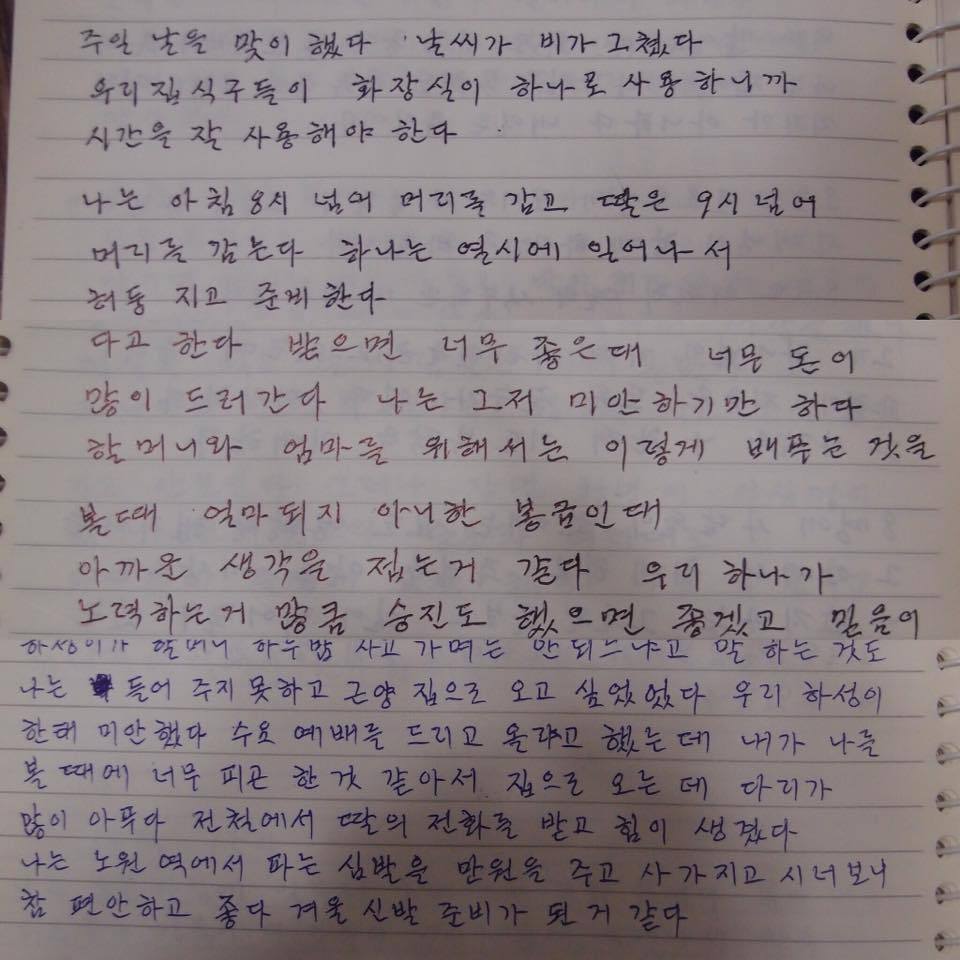 주일 날을 맞이 했다 날씨가 비가 그쳤다
우리집 식구들이 화장실이 하나로 사용 하니까
시간을 잘 사용해야 한다
나는 아침 8시 넘어 머리를 감고 딸은 9시 넘어
머리를 감는다 하나는 열시에 일어나 서
허둥 지고 준비 한다
다고 한다 받으면 너무 좋은대 너무 돈이
많이 드러간다 나는 그저 미안하기만 하다
할머니와 엄마를 위해서는 이렇게 배푸는 것을
볼때 얼마되지 아니한 봉급인대
아까운 생각을 접는거 같다 우리 하나가
노력하는거 많큼 승진도 했으면 좋겠고 믿음이
하성이가 할머니 하루밤 사고 가며는 안되느냐고 말 하는 것도
나는 들어 주지 못하고 근양 집으로 오고 싶었었다 우리 하성이
한태 미안했다 수요 예배를 드리고 올라고 했는데 내가 나를
볼 때에 너무 피곤 한것 같아서 집으로 오는 데 다리가
많이 아푸다 전철에서 딸의 전화를 받고 힘이 생겼다
나는 노원 역에서 파는 심발을 만원을 주고 사가지고 시너보니
참 편안하고 좋다 겨울 신발 준비가 된거 같다